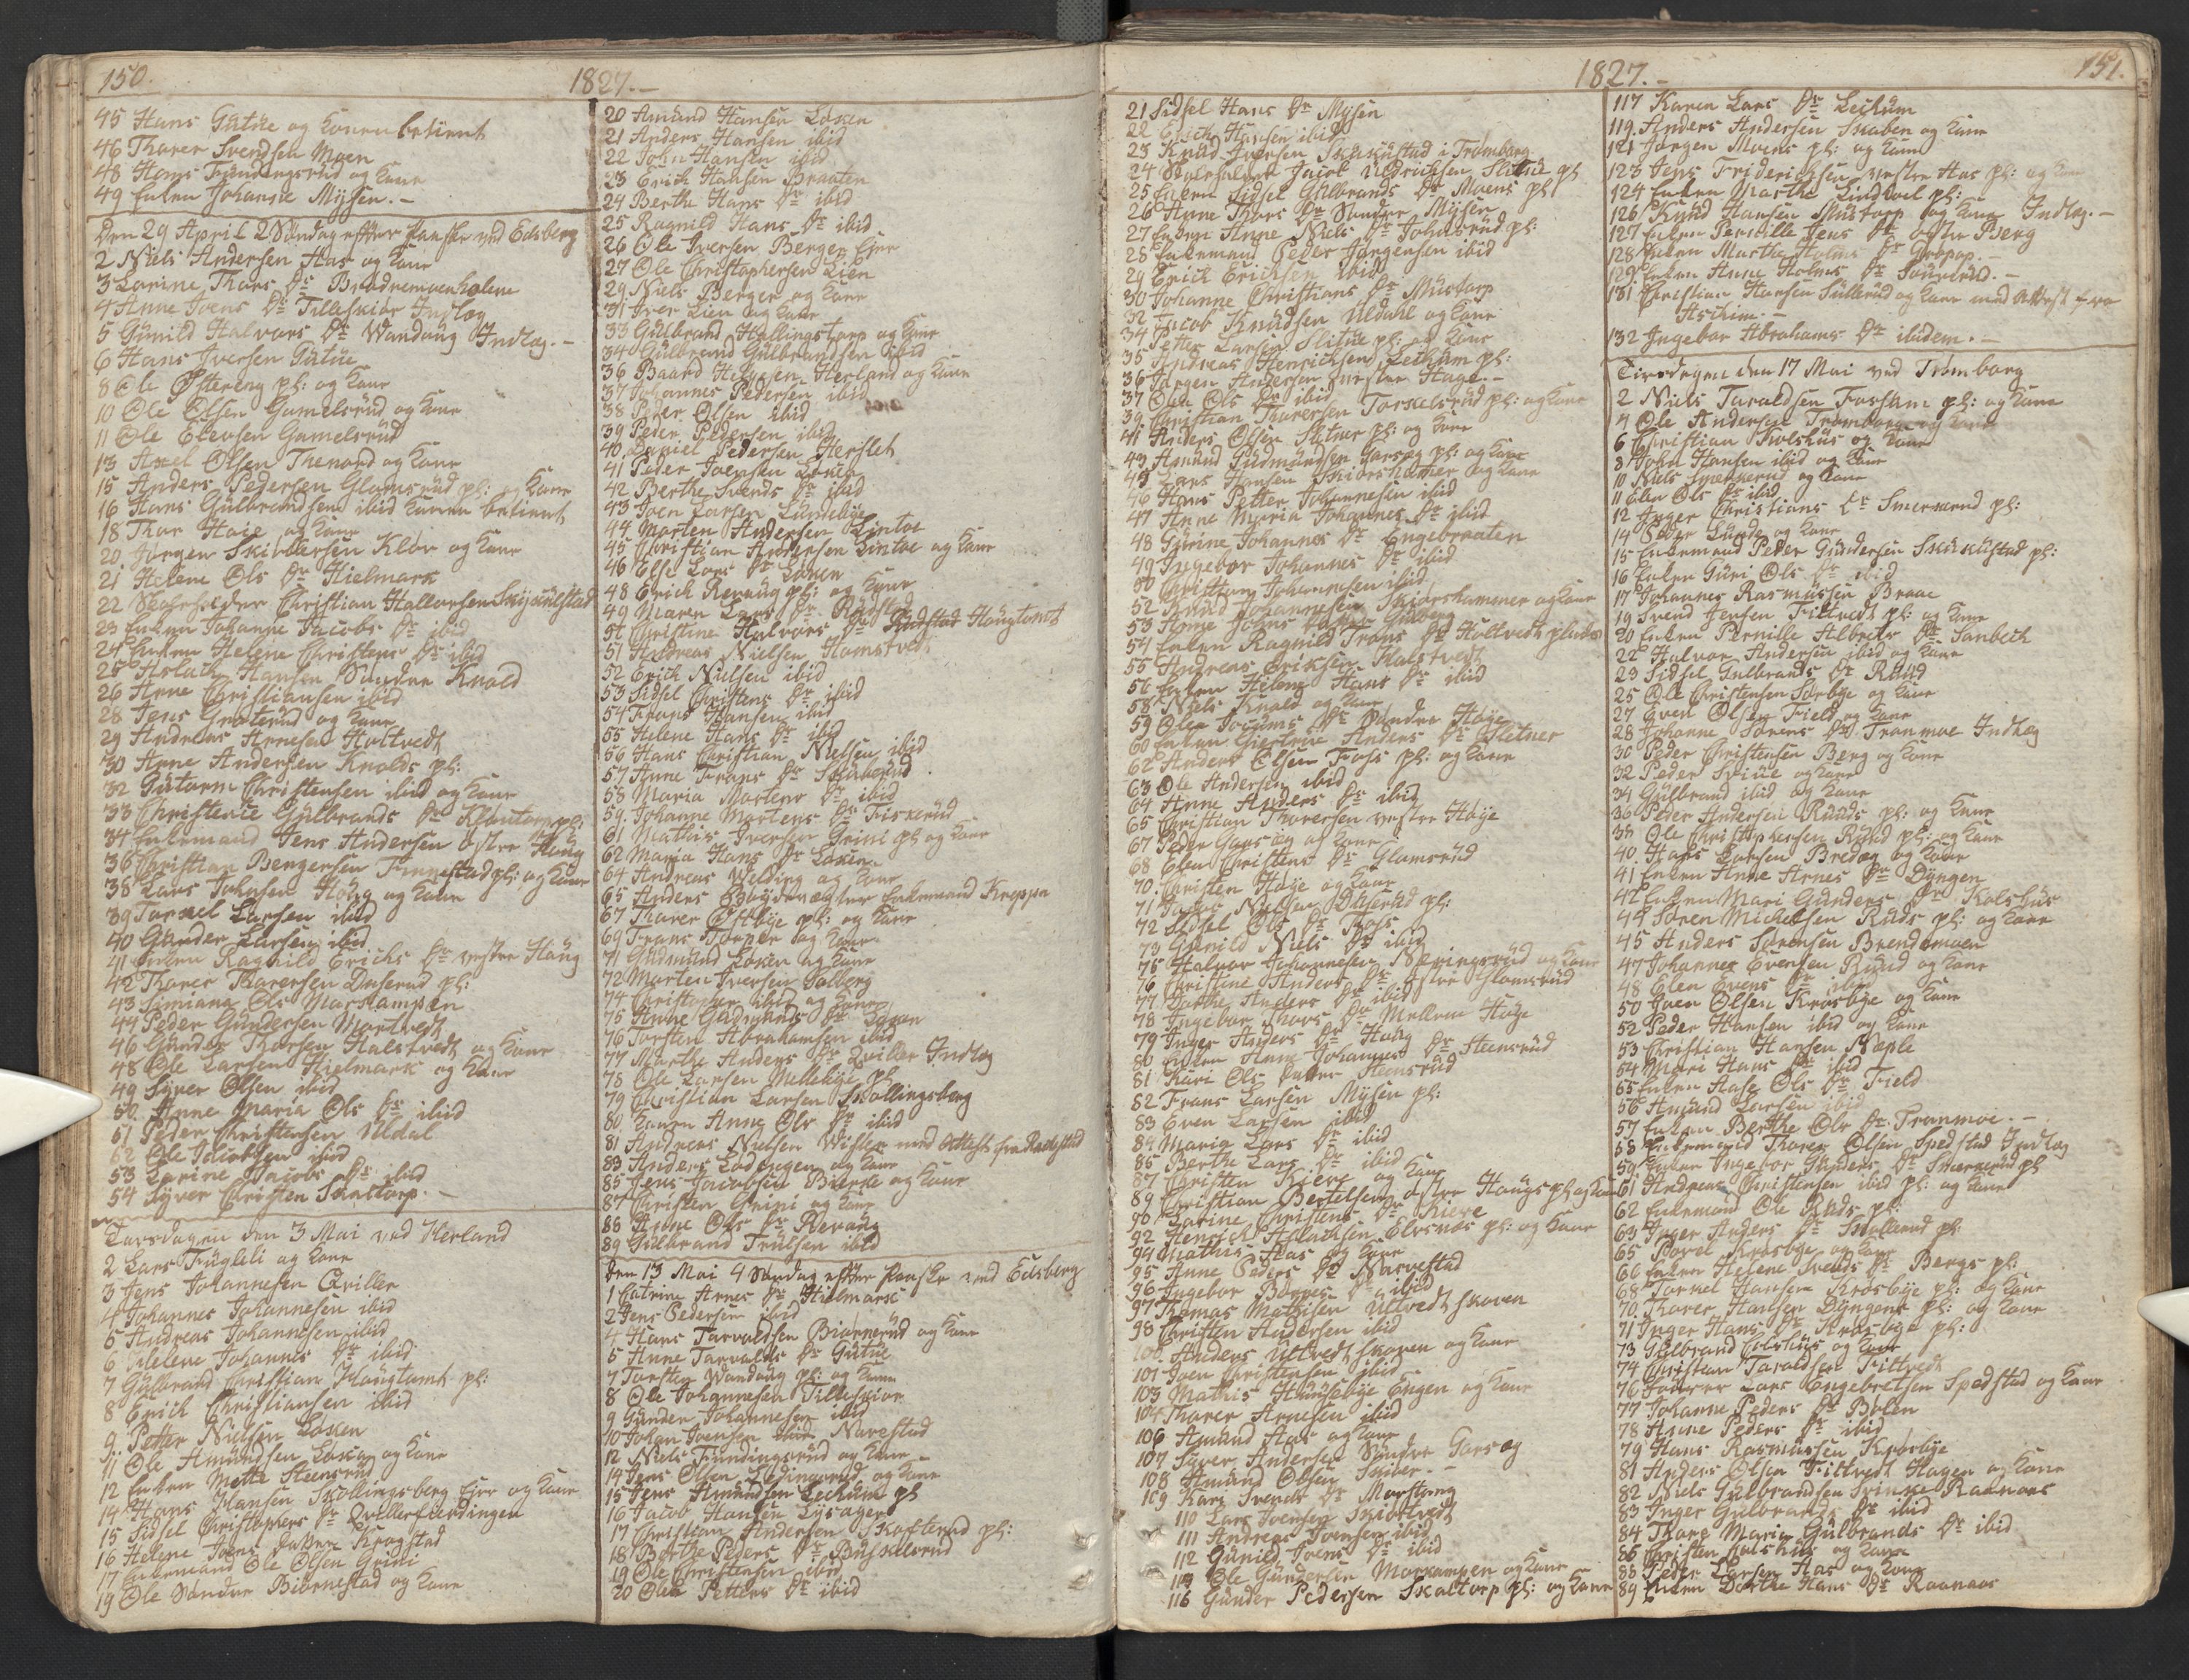 150.
1827.
45 Hans Gütüe og Konen betient
46 Tharer Svendsen Moen
48 Hans Fündingsrüd og Kone
49 Enken Johanne Mysen. -
Den 29 April 2 Søndag efter Paaske ved Edsberg
2 Niels Andersen Aas og Kone
3 Larine Thars Dr Brendemoenholene
4 Anne Joens Dr Tilleskiør Indlæg
5 Günild Halvors Dr Wandüng Indlæg. -
6 Hans Iversen Gütüe
8 Ole Østereng pl: og Kone
10 Ole Olsen Gamelsrüd og Kone
11 Ole Elevsen Gamelsrüd
13 Axel Olsen Thenord og Kone
15 Anders Pedersen Glomsrüd pl: og Kone
16 Hans Gülbrandsen ibid Konen betient
18 Thor Haie og Kone
20 Jørgen Skibbersen Kløv og Kone
21 Helene Ols Dr Hielmark
22 Skoleholder Christian Hallorsen Skjeülstad
23 Enken Johanne Jacobs Dr ibid
24 Enken Helene Christens Dr ibid
25 Aslach Hansen Søndre Knold
26 Arne Christiansen ibid
28 Jens Graterüd og Kone
29 Andreas Arnesen Holtvedt
30 Arne Andersen Knolds pl:
32 Gütorm Christensen ibid og Kone
33 Christence Gülbrands Dr Kløntorp pl:
34 Enkemand Jens Andersen østre Haüg
36 Christian Bengersen Finnestad pl: og Kone
38 Lars Johnsen Haüg og Kone
39 Torkel Larsen ibid
40 Günder Larsen ibid
41 Enken Ragnild Erichs Dr vestre Haüg
42 Tharer Tharersen Düserüd pl:
43 Simiana Ols Morskampen
44 Peder Gündersen Mortvedt
46 Günder Thorsen Halstvedt og Kone
48 Ole Larsen Hielmark og Kone
49 Syver Olsen ibid
50 Anne Maria Ols Dr ibid
51 Peder Christensen Uldal
52 Ole Jacobsen ibid
53 Larine Jacobs Dr ibid
54 Syver Christen Skaltorp. -
Torsdagen den 3 Mai ved Herland
2 Lars Trügleli og Kone
3 Jens Johannesen Qviller
4 Johannes Johannesen ibid
5 Andreas Johannesen ibid
6 Helene Johannes Dr ibid
7 Gülbrand Christian Haügtomt pl:
8 Erich Christiansen ibid
9 Petter Nielsen Løken
11 Ole Amündsen Løken og Kone
12 Enken Mette Steensrüd
14 Hans Hansen Skøllingsberg Eier og Kone
15 Sidsel Christophers Dr Qvillerfierdingen
16 Helene Joens Datter Krogstad
17 Enkemand Ole Olsen Grini
19 Ole Søndre Biørnestad og Kone
20 Amünd Hansen Løken
21 Anders Hansen ibid
22 John Hansen ibid
23 Erich Hansen Braaten
24 Berthe Hans Dr ibid
25 Ragnild Hans Dr ibid
26 Ole Iversen Berger Eier
27 Ole Christophersen Lien
29 Niels Berger og Kone
31 Iver Lien og Kone
33 Gülbrand Hallingstorp og Kone
34 Gülbrand Gülbrandsen ibid
36 Baard Helgesen Herland og Kone
37 Johannes Pedersen ibid
38 Peder Olsen ibid
39 Peder Pedersen ibid
40 Daniel Pedersen Herslet
41 Peder Joensen Løken
42 Berthe Svends Dr ibid
43 Joen Larsen Lundebye
44 Morten Andersen Lintoe
45 Christian Andersen Lintoe og Kone
46 Else Lars Dr Løken
48 Erich Revaüg pl: og Kone
49 Maren Lars Dr Rüdstad
50 Christine Halvors Dr Haügtomt
51 Andreas Nielsen Homstvedt
52 Erich Nielsen ibid
53 Sidsel Christens Dr ibid
54 Frans Hansen ibid
55 Helene Hans Dr ibid
56 Hans Christian Nielsen ibid
57 Anne Frans Dr Sküberüd
58 Maria Mortens Dr ibid
59 Johanne Mortens Dr Fiskerüd
61 Mathis Iversen Grini pl og Kone
62 Maria Hans Dr Løken
64 Andreas Velding og Kone
65 Anders Enkemand Kroppen
67 Tharer Østbye pl: og Kone
69 Frans Torper og Kone
71 Güdmünd Løken og Kone
72 Morten Iversen Solberg
74 Christopher ibid og Kone
75 Anne Güdmünds Dr Løken
76 Torsten Abrahamsen ibid
77 Marthe Anders Dr Qviller Indlæg
78 Ole Larsen Mellebye pl
79 Christian Larsen Skøllingsberg
80 Konen Anne Ols Dr ibid
81 Andreas Nielsen Wister med Attest fra Rachestad
83 Anders Lødengen og Kone
85 Jens Jacobsen Bierke og Kone
87 Christen Grini og Kone
88 Anne Ols Dr Revaüg
89 Gülbrand Trülsen ibid
Den 13 Mai 4 Søndag efter Paaske ved Edsberg
1 Catrine Arnes Dr Hielmark
2 Jens Pedersen ibid
4 Hans Tarvaldsen Biørnerüd og Kone
5 Anne Tarvalds Dr Gütüe
7 Torsten Wandüng pl: og Konen
8 Ole Johannesen Tilleskiør
9 Günder Johannesen ibid
10 Johan Joensen Narestad
12 Niels Fündingsrüd og Kone
14 Jens Olsen Ledingsrüd og Kone
15 Jens Amündsen Lechüm pl
16 Jacob Hansen Lysager
17 Christian Andersen Skofterüd pl:
18 Berthe Peders Dr Büskelerüd
19 Ole Christensen ibid
20 Olea Petters Dr ibid
1827.-
151.
21 Sidsel Hans Dr Mysen
22 Erich Hansen ibid
23 Knüd Iversen Skükustad i Trømborg
24 Skoleholder Jacob Uldrichsen Slitüe pl
25 Enken Sidsel Gülbrands Dr Moens pl
26 Anne Thors Dr Søndre Mysen
27 Enken Anne Niels Dr Johnsrüd pl:
28 Enkemand Peder Jørgensen ibid
29 Erich Erichsen ibid
30 Johanne Christians Dr Müstorp
32 Jacob Knüdsen Uldahl og Kone
34 Petter Larsen Slitüe pl: og Kone
35 Andreas Henrichsen Lechüm pl:
36 Jørgen Andersen vestre Hage.-
37 Olea Ols Dr ibid
39 Christian Tharersen Torkelsrüd pl: og Kone
41 Anders Olsen Sletner pl: og Kone
43 Amünd Güdmündsen Garseg pl: og Kone
45 Lars Hansen Skiørshamer og Kone
46 Hans Petter Johannesen ibid
47 Anne Maria Johannes Dr ibid
48 Gürine Johannes Dr Engebraaten
49 Ingebor Johannes Dr ibid
50 Christian Johannesen ibid
52 Knüd Johannesen Skiørshammer og Kone
54 Enken Ragnild Frans Dr Holtvedt pladsen
55 Andreas Eriksen Halstvedt
56 Enken Helene Hans Dr ibid
58 Niels Knold og Kone
59 Olea Jocums Dr Søndre Høye
60 Enken Giertrüe Anders Dr Sletner
62 Anders Olsen Foss pl: og Kone
63 Ole Andersen ibid
64 Anne Anders Dr ibid
65 Christian Thoresen vestre Høye
67 Peder Garseg og Kone
68 Elen Christens Dr Glomsrüd
70 Christen Høye og Kone
71 Jacob Nielsen Düserüd pl:
72 Sidsel Ols Dr Foss
73 Günild Niels Dr ibid
75 Halvor Johannesen Næringsrüd og Kone
76 Christine Anders Dr østre Glomsrüd
77 Dorthe Anders Dr ibid
78 Ingebor Thors Dr Mellem Høye
79 Inger Anders Dr Haüg
80 Enken Anne Johannes Dr Steensrüd
81 Kari Ols Datter Steensrüd
82 Frans Larsen Mysen pl:
83 Even Larsen ibid
84 Maria Lars Dr ibid
85 Berthe Lars Dr ibid
87 Christen Kiere og Kone
89 Christian Bertelsen østre Haügs pl og Kone
90 Larine Christens Dr Kiere
92 Henrich Aslachsen Elvsnæs pl: og Kone
94 Mathis Aas og Kone
95 Anne Peders Dr Narvestad
96 Ingebor Dr ibid
97 Thomas Mathisen Ultvedtskoven
98 Christen Andersen ibid
100 Anders Ultvedtskoven og Kone
101 Joen Christensen ibid
103 Mathis Haüsebye Engen og Kone
104 Tharer Arnesen ibid
106 Amünd Aas og Kone
107 Syver Andersen Søndre Garseg
108 Amünd Olsen Skiber. -
109 Kari Svends Dr Morstong
110 Lars Joensen Skiøltvedt
111 Andreas Joensen ibid
112 Günild Joens Dr ibid
114 Ole Gündersen Morkampen og Kone
116 Günder Pedersen Skaltorp pl: og Kone
117 Karen Lars Dr Lechüm
119. Anders Andersen Skaben og Kone
121 Jørgen Moens pl: og Kone
123 Jens Friderichsen vestre Aas pl: og Kone
124 Enken Marthe Lindhol pl:
126 Knüd Hansen Müstorp og Kone Indlæg. -
127 Enken Pernille Jens Dr østre Berg
128 Enken Marthe Holms Dr Gropop. -
129 Enken Anne Holms Dr -
131 Christian Hansen Süllerüd og Kone med Attest fra
Aschim. -
132 Ingebor Abrahams Dr ibidem. -
Tirsdagen den 17 Mai ved Trømborg
2 Niels Taraldsen Fossum pl: og Kone
4 Ole Andersen Trømborg og Kone
6 Christian Kolshüs og Kone
8 John Hansen ibid og Kone
10 Niels Smerkerüd og Kone
11 Elen Ols Dr ibid
12 Inger Christians Dr Smerkerüd pl:
14 Peder Lünde og Kone
15 Enkemand Peder Gündersen Skükustad pl:
16 Enken Güri Ols Dr ibid
17 Johannes Rasmüssen Braae
19 Svend Jensen Filtvedt pl: og Kone
20 Enken Pernille Albrets Dr Sanbech
22 Halvor Andersen ibid og Kone
23 Sidsel Gulbrands Dr Rüüd
25 Ole Christensen Sørbye og Kone
27 Even Olsen Field og Kone
28 Johanne Sørens Dr Tranmoe Indlæg
30 Peder Christensen Berg og Kone
32 Peder Sviüe og Kone
34 Gülbrand ibid og Kone
36 Peder Andersen Rüüds pl: og Kone
38 Ole Christophersen Rüüd pl: og Kone
40. Hans Larsen Bredeg og Kone
41 Enken Anne Arnes Dr Dyngen
42 Enken Mari Günders Dr Kolshüs
44 Søren Michelsen Rüds pl: og Kone
45 Anders Sørensen Brendemoen
47 Johannes Evensen Rüüd og Kone
48 Elen Evens Dr ibid
50 Joen Olsen Krosbye og Kone
52 Peder Hansen ibid og Kone
53 Christian Hansen Næple
54 Mari Hans Dr ibid
55 Enken Aase Ols Dr Field
56 Amünd Larsen ibid
57 Enken Berthe Ols Dr Tranmoe. -
58 Enkemand Tharer Olsen Spedstad Indlæg
59 Enken Ingebor Günders Dr Smerkerüd pl
61 Andreas Christensen ibid pl: og Kone
62 Enkemand Ole Rüds pl:
63 Inger Anders Dr Skolterüd pl:
65 Povel Krosbye og Kone
66 Enken Helene Svends Dr Bergs pl:
68 Tormel Hansen Krosbye pl: og Kone
70. Tharer Hansen Dyngens pl: og Kone
71 Inger Hans Dr Krosbye pl:
73 Gülbrand Colshüs og Kone
74 Christian Taraldsen Fittvedt
76 Lars Engebretsen Spedstad og Kone
77 Johanne Peders Dr Bølen
78 Anne Peders Dr ibid
79 Hans Rasmüssen Krosbye
81 Anders Olsen Filtvedt Hagen og Kone
82 Niels Gülbrandsen Svinke Raanaas
83 Inger Gülbrands Dr ibid
84 Thore Maria Gülbrands Dr ibid
86 Christen Colshüs og Kone
88 Peder Larsen Aas og Kone
89 Enken Dorthe Hans Dr Raanaas